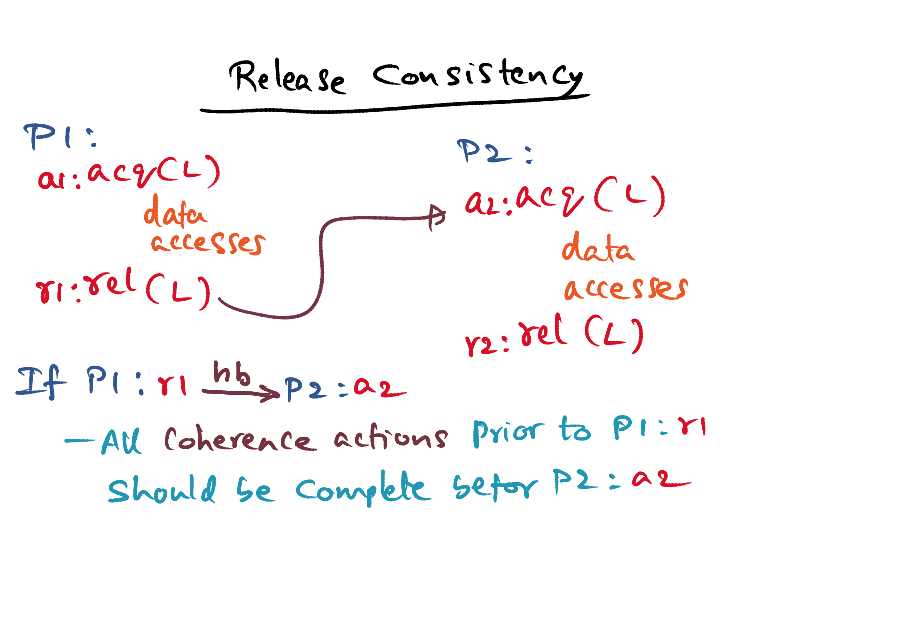 Release Consistency
P1:
a1: acq(L)
data
accesses
r1: rel(L)
P2:
a2: acq(L)
data
accesses
r2: rel(L)
If P1: r1 hb P2: a2
- All Coherence actions prior to P1: r1
should be complete befor P2: a2